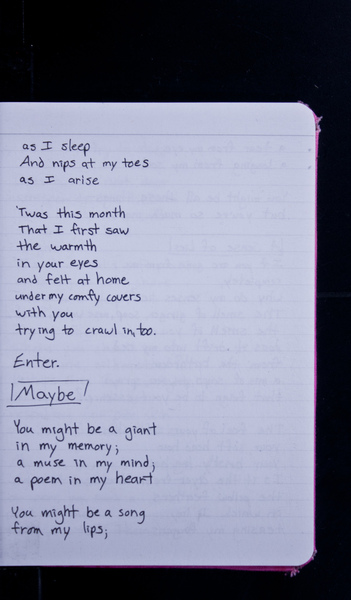 as I sleep
And nips at my toes
as I arise
'Twas this month
That I first saw
the warmth
in your eyes
and felt at home
under my comfy covers
with you
trying to crawl in, too.
Enter.
Maybe
You might be a giant
in my memory;
a muse in my mind;
a poem in my heart
You might be a song
from my lips;